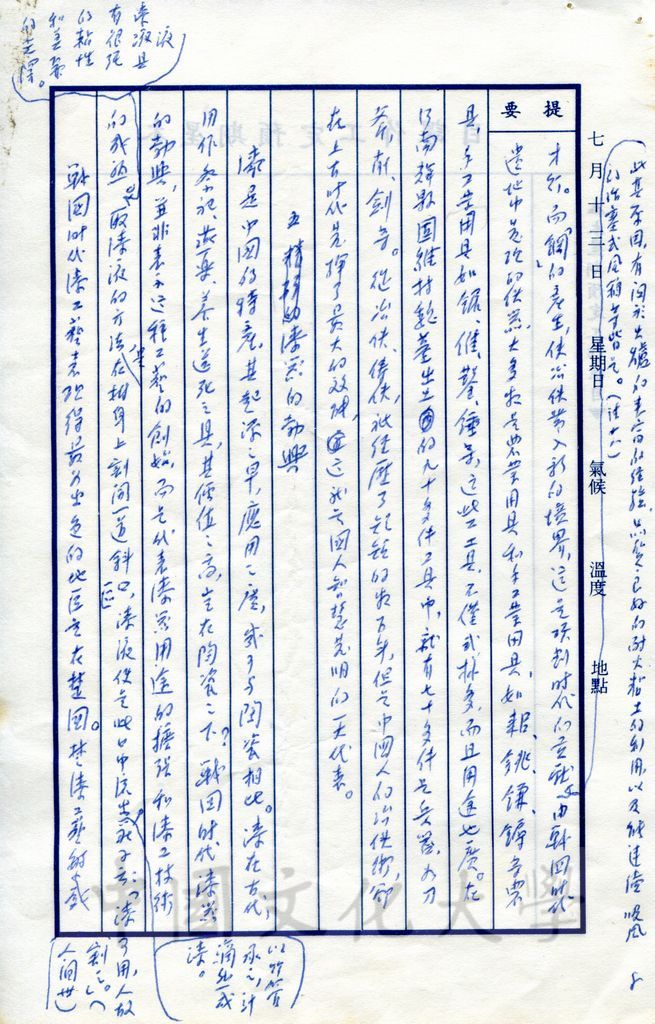 此其原因，有關於出爐的豐富的經驗，品質良好的耐火黏土的利用，以及能建造吸風
的活塞式風箱等皆是。（注十六）
七月十三日 星期日 氣候 溫度 地點
提要
才行。而「鋼」的產生，使冶鐵業入新的境界，這是項劃時代的貢獻。由戰國時代
遺址中發現的鐵器，大多數是農業用具和手工業用具，如耜、銚、鐮、鎛等農
具，手工業用具如鋸、錐、鑿、錘等，這些工具，不僅式樣多，而且用途也廣。在
河南輝縣固維村魏墓出土的九十多件工具中，就有七十多件是兵器，如刀
斧、削、劍等。從冶鐵、鑄鐵，歐經歷了的數百年，但是中國人的冶鐵術，卻
在上古時代先揮了最大的效能，這是我國人智慧光明的一大代表。
五 精緻的漆器的勃興
漆是中國的特產，其起源之早，應用之廣，或可與陶瓷相比。漆在古代，
用作於記、燕樂、養生送死之具，其價值之高，豈在陶瓷之下？戰國時代漆器
的勃興，並非表示這種工藝的創始，而是代表漆器用途的擴張和漆工技術
的成熟。取漆液的方法，是在樹身上割開一道斜口，漆液便從此口中流出，莊子云：「漆可用，人故
割之。」（人間世）
以竹管承之，汁滴則成漆。
漆液具有很強的黏性和美麗的光澤。
戰國時代漆工藝表現得最為出色的地區是在楚國。楚漆工藝的盛
8
中國文化大學